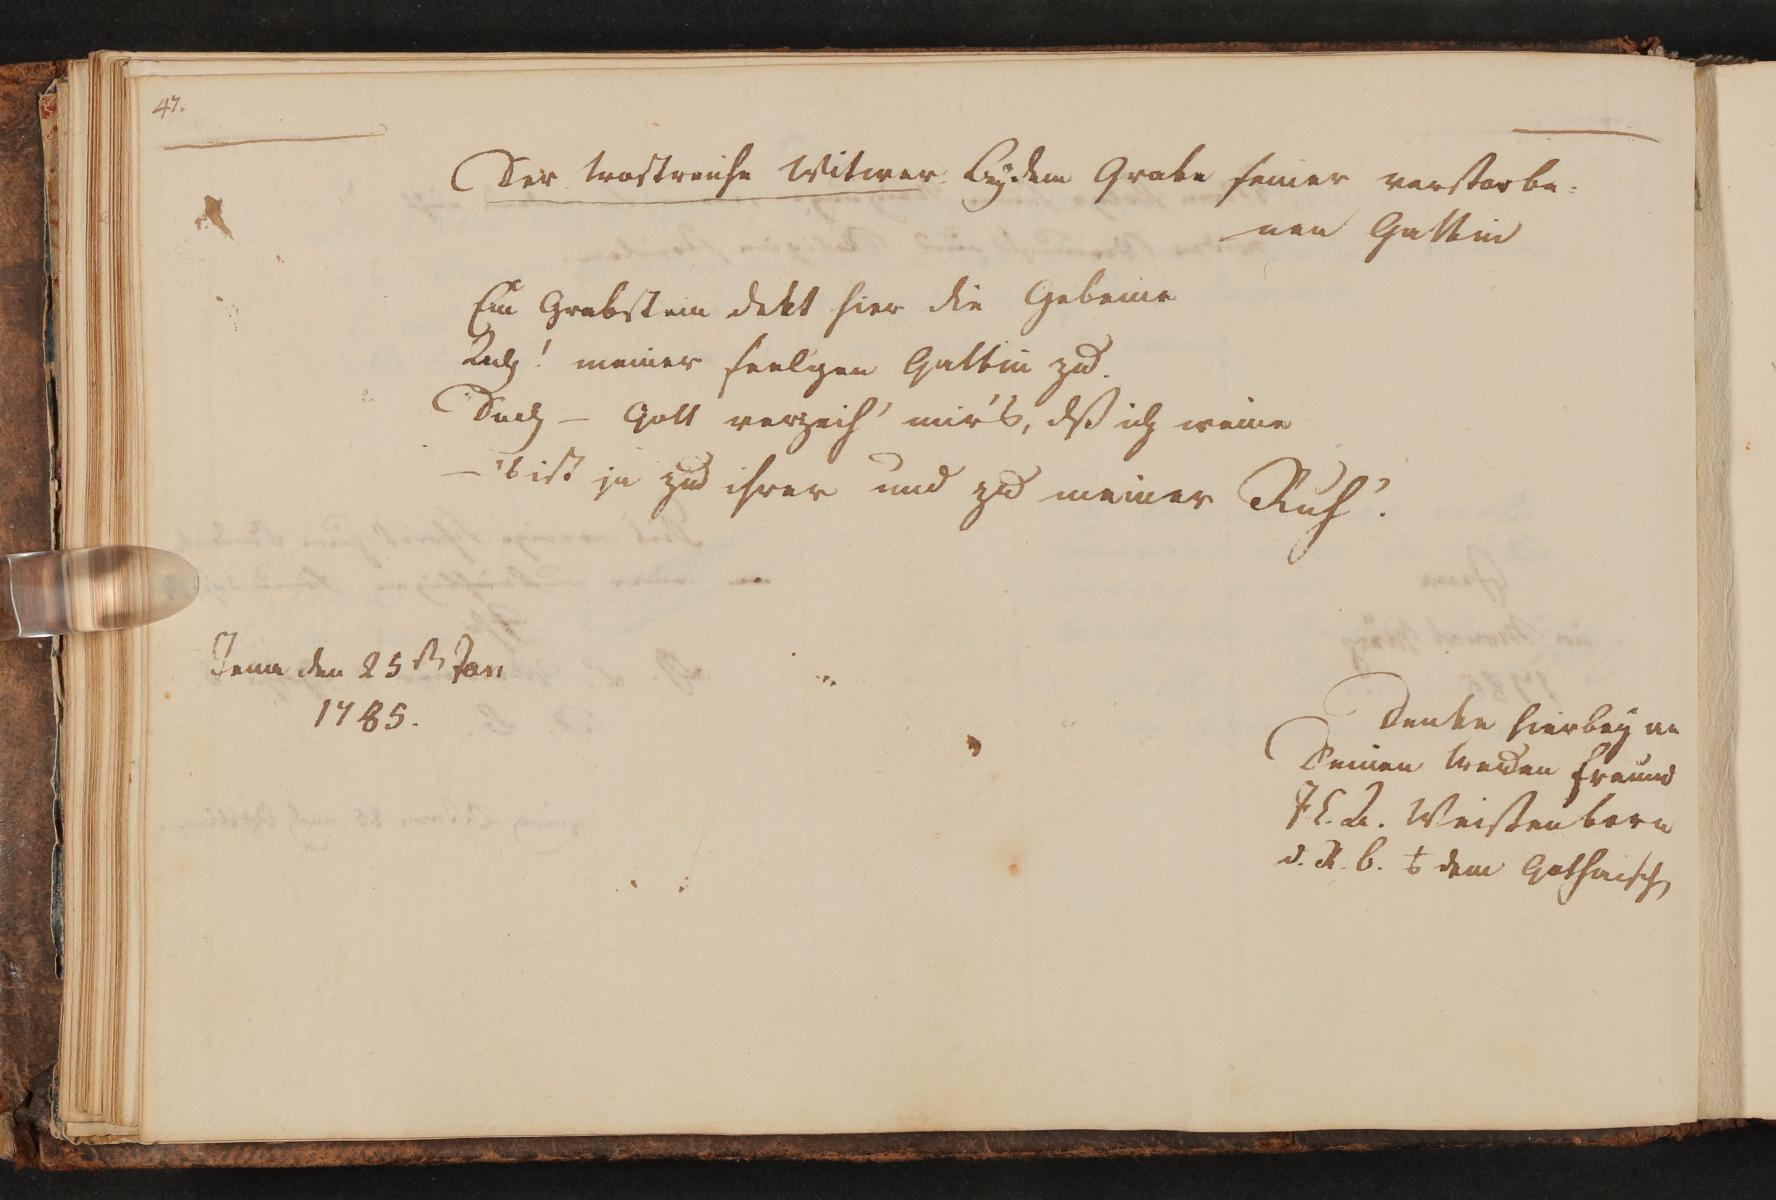 47.
Der trostreiche Witwer bey dem Grabe seiner verstorbe-
nen Gattin
Ein Grabstein dekt hier die Gebeine
Ach! meiner seeligen Gattin zu.
Doch — Gott verzeih' mir's, dß ich weine
— 's ist ja zu ihrer und zu meiner Ruh'.
Jena den 25st Jan
1785.
Denke hierbey an
Deinen treuen Freund
J. C. A. Weissenborn
d. R. b. dem Gothaisch